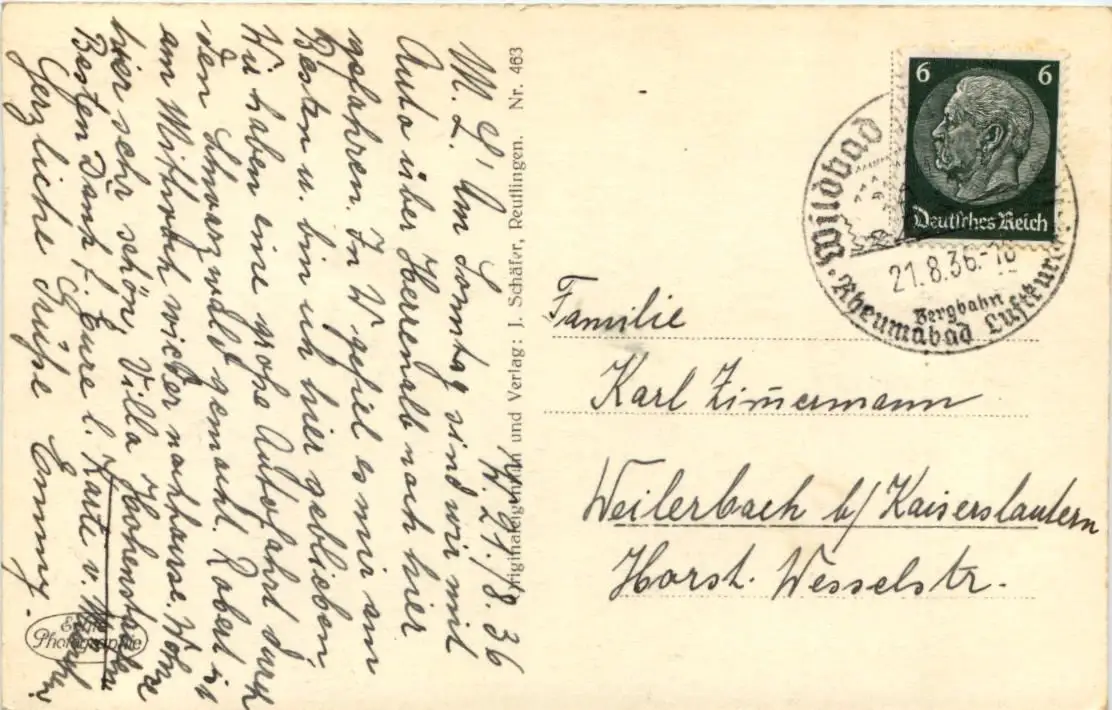 W. 21./8.36
M. L.! Am Sonntag sind wir mit
Auto über Herrenalb nach hier
gefahren. In W gefiel es mir am
Besten u. bin ich hier geblieben.
Wir haben eine große Autofahrt durch
den Schwarzwald gemacht. Robert ist
am Mittwoch wieder nachhause. Wohne
hier sehr schön, Villa Hohenstaufen.
Besten Dank f. Eure l. Karte v.
Herzliche Grüße Emmy.
Echte
Photographie
Originaleigentum und Verlag: J. Schäfer, Reutlingen. Nr. 463
6 6
Deutsches Reich
Wildbad
21.8.36.-18
Bergbahn
Rheumabad Luftkurort
Familie
Karl Zimmermann
Weilerbach b/Kaiserslautern
Horst. Wesselstr.